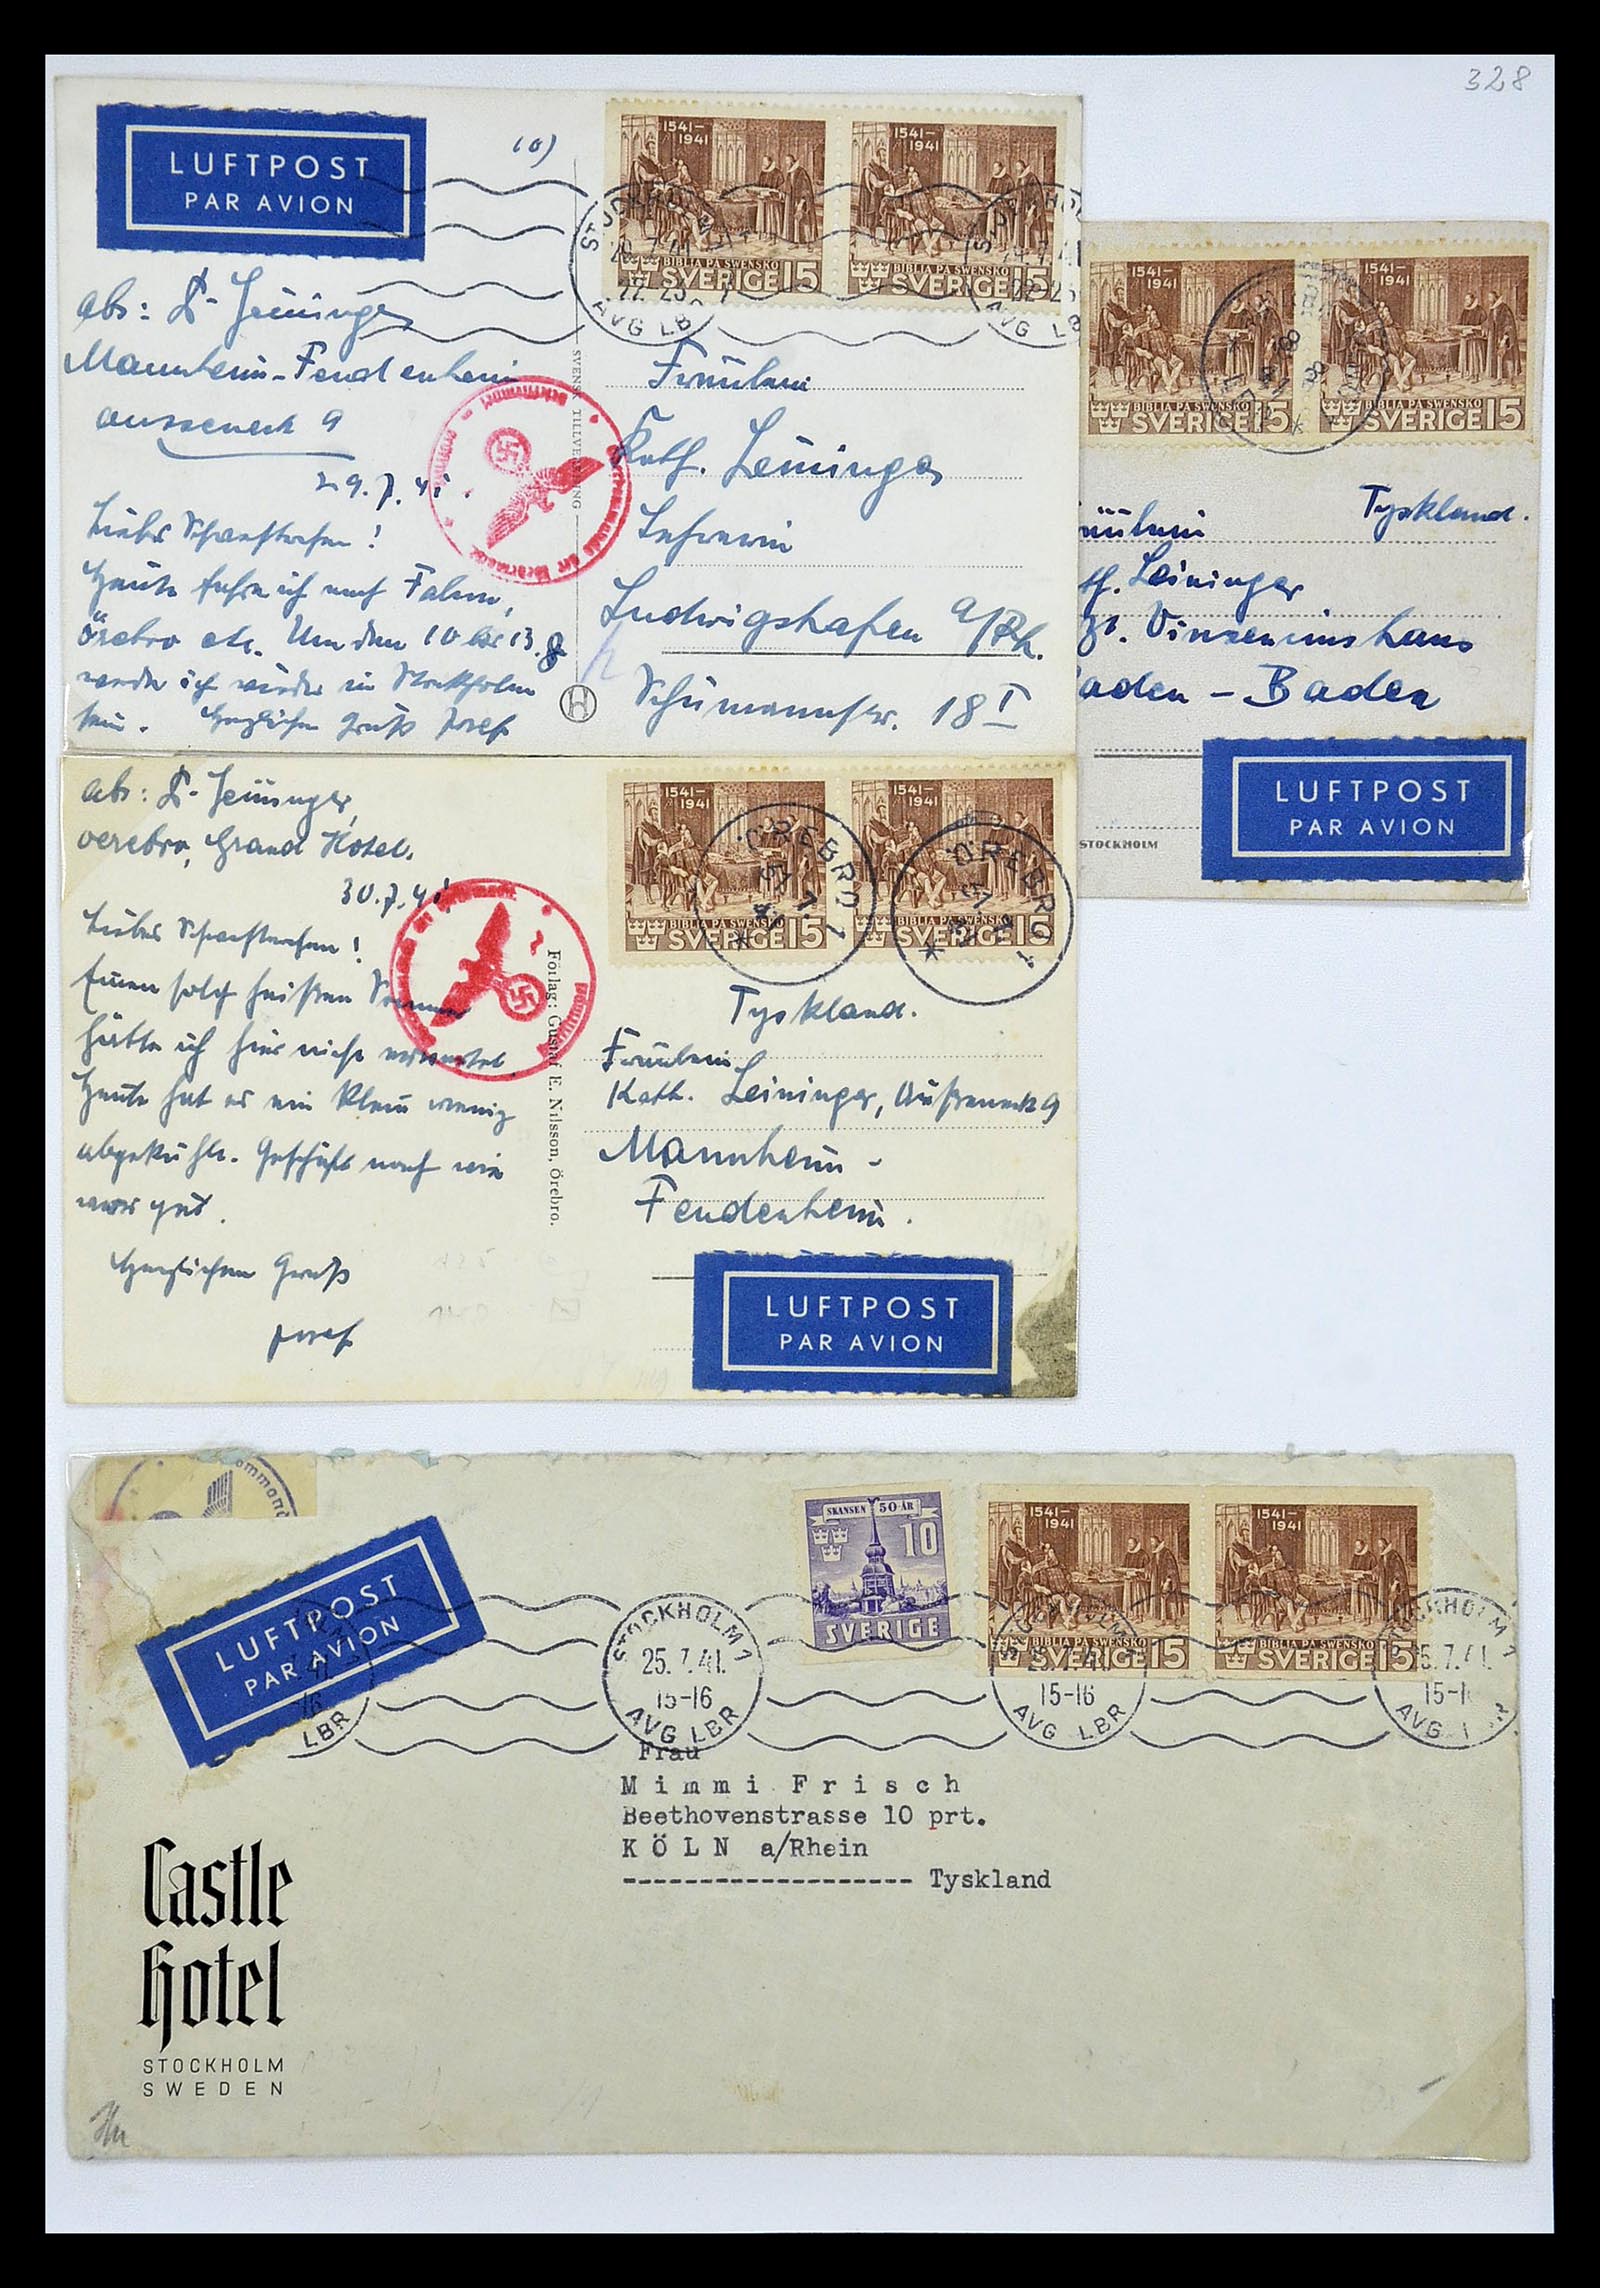 328
LUFTPOST
PAR AVION
(0)
1541–
1941
BIBLIA PÅ SWENSKO
SVERIGE 15
1541–
1941
BIBLIA PÅ SWENSKO
SVERIGE 15
STOCKHOLM 1
29.7.41
22-23
AVG LBR
abs: L. Leininger
Mannheim-Feudenheim
ausseneck 9
29.7.41.
Liebes Schwesterchen!
Heute fahre ich nach Falun,
Örebro etc. Um den 10 bis 13. 8
werde ich wieder in Stockholm
sein. Herzlichen Gruß Josef
SVENSK TILLVERKNING
Fräulein
Kath. Leininger
Lehrerin
Ludwigshafen a/Rh.
Schumannstr. 18 I
1541–
1941
BIBLIA PÅ SWENSKO
SVERIGE 15
1541–
1941
BIBLIA PÅ SWENSKO
SVERIGE 15
Tyskland.
Leininger
Vinzentiushaus
aden - Baden
LUFTPOST
PAR AVION
STOCKHOLM
abs: L. Leininger,
Oerebro, Grand Hotel.
30.7.41.
Liebes Schwesterchen!
Einen solch heißen Sommer
hätte ich hier nicht erwartet.
Heute hat es ein klein wenig
abgekühlt. Geschäft nach wie
vor gut.
Herzlichen Gruß
Josef
Förlag: Gustaf E. Nilsson, Örebro.
1541–
1941
BIBLIA PÅ SWENSKO
SVERIGE 15
1541–
1941
BIBLIA PÅ SWENSKO
SVERIGE 15
ÖREBRO 1
ÖREBRO 1
Tyskland.
Fräulein
Kath. Leininger, Außeneck 9
Mannheim -
Feudenheim.
LUFTPOST
PAR AVION
LUFTPOST
PAR AVION
SKANSEN 50 ÅR
10
SVERIGE
1541–
1941
BIBLIA PÅ SWENSKO
SVERIGE 15
1541–
1941
BIBLIA PÅ SWENSKO
SVERIGE 15
STOCKHOLM 1
25.7.41.
15-16
AVG LBR
Frau
Mimmi Frisch
Beethovenstrasse 10 prt.
KÖLN a/Rhein
------------------- Tyskland
Castle
Hotel
STOCKHOLM
SWEDEN